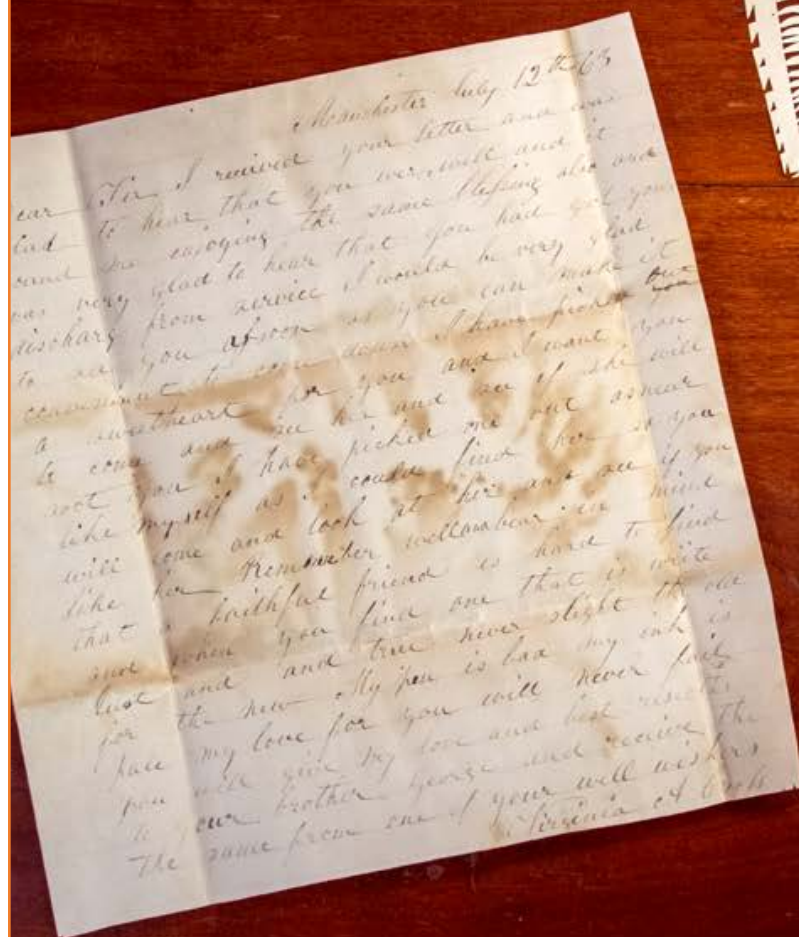 Manchester July 12th 63
ear Sir I received your letter and was
lad to hear that you wer well and it
ound me enjoying the same blessing also and
was very glad to hear that you had got your
discharg from service I would be very glad
to see you assoon as you can make it
convenient to come down I have picked out
a sweetheart for you and I want you
to come and see her and see if she will
soot you I have picked one out asnear
like myself as I could find her so you
will come and look at her and see if you
like her Remember well and bear in mind
that a faithful friend is hard to find
and when you find one that is
just and and true never slight the old
for the new My pen is bad my ink is
pale my love for you will never fail
you will give my love and best
to your brother George and receive the
the same from one of your well wishers
Virginia A